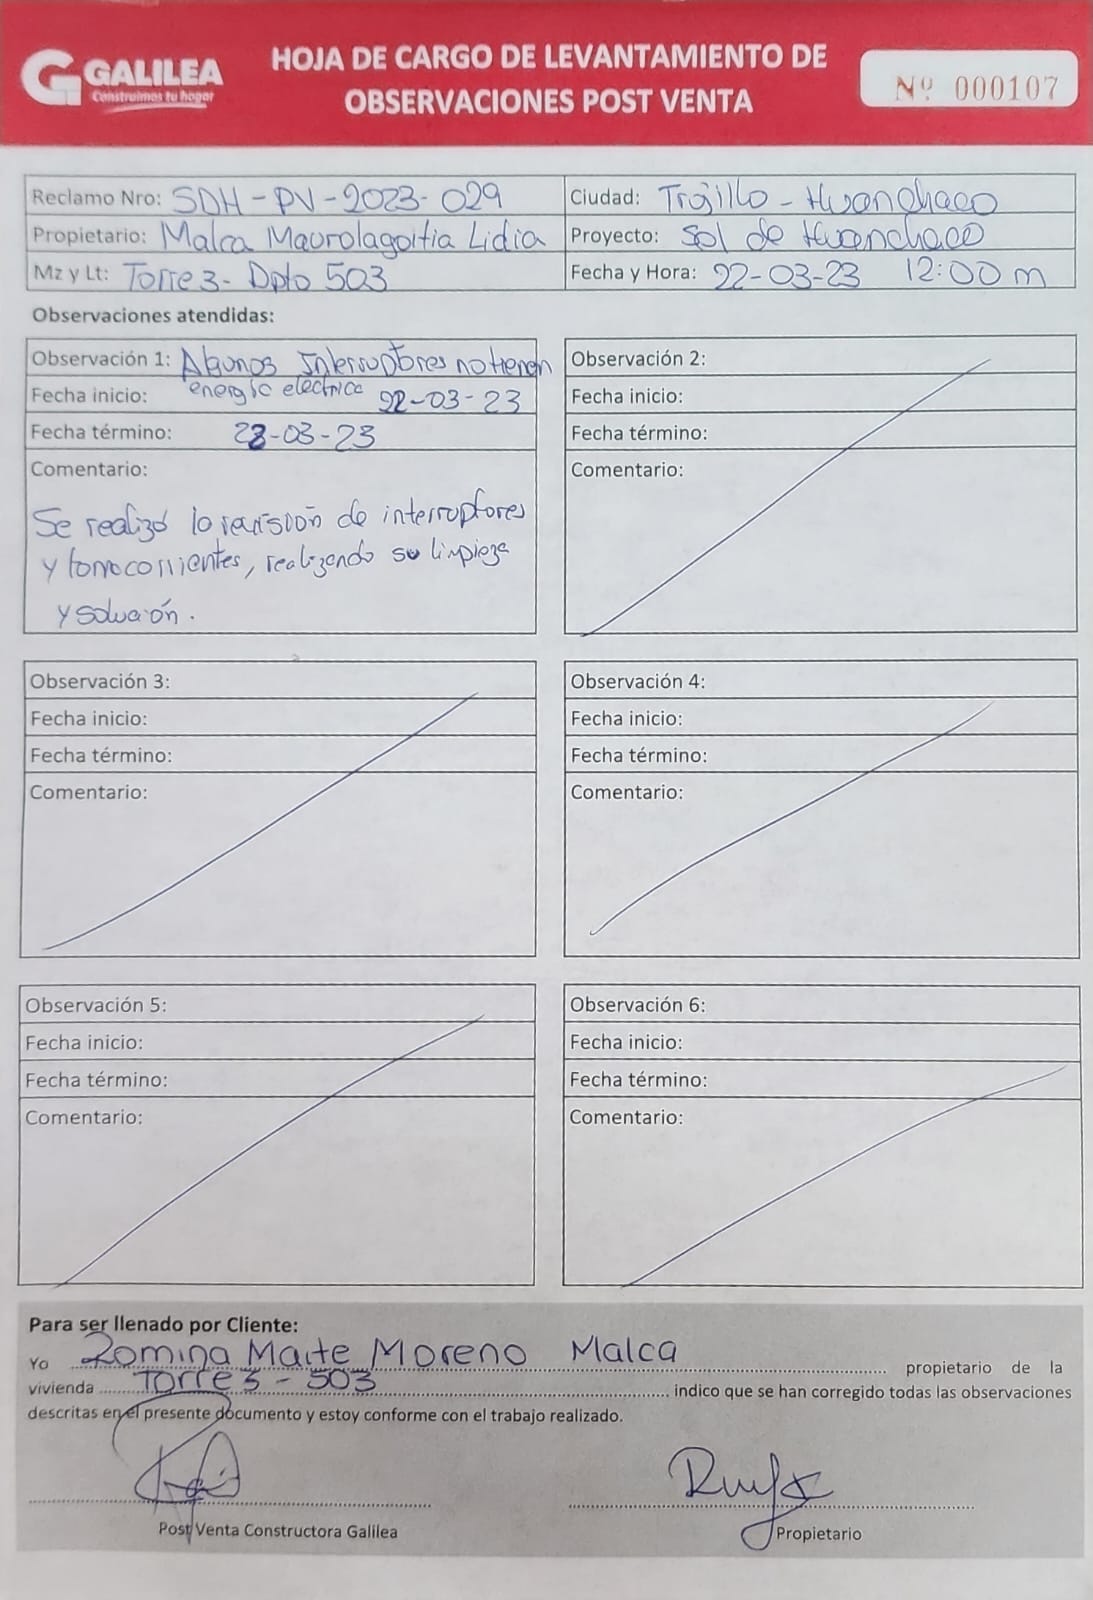 GALILEA
Construimos tu hogar
HOJA DE CARGO DE LEVANTAMIENTO DE
OBSERVACIONES POST VENTA
Nº 000107
Reclamo Nro: SDH-PV-2023-029
Ciudad: Trujillo - Huanchaco
Propietario: Malca Maurolagoitia Lidia
Proyecto: Sol de Huanchaco
Mz y Lt: Torre 3- Dpto 503
Fecha y Hora: 22-03-23 12:00 m
Observaciones atendidas:
Observación 1: Algunos Interruptores no tienen
energía eléctrica
Fecha inicio: 22-03-23
Fecha término: 23-03-23
Comentario:
Se realizó la revisión de interruptores
y tomacorrientes, realizando su limpieza
y solución.
Observación 2:
Fecha inicio:
Fecha término:
Comentario:
Observación 3:
Fecha inicio:
Fecha término:
Comentario:
Observación 4:
Fecha inicio:
Fecha término:
Comentario:
Observación 5:
Fecha inicio:
Fecha término:
Comentario:
Observación 6:
Fecha inicio:
Fecha término:
Comentario:
Para ser llenado por Cliente:
Yo Romina Maite Moreno Malca propietario de la
vivienda Torre 3 - 503 indico que se han corregido todas las observaciones
descritas en el presente documento y estoy conforme con el trabajo realizado.
Post Venta Constructora Galilea
Propietario